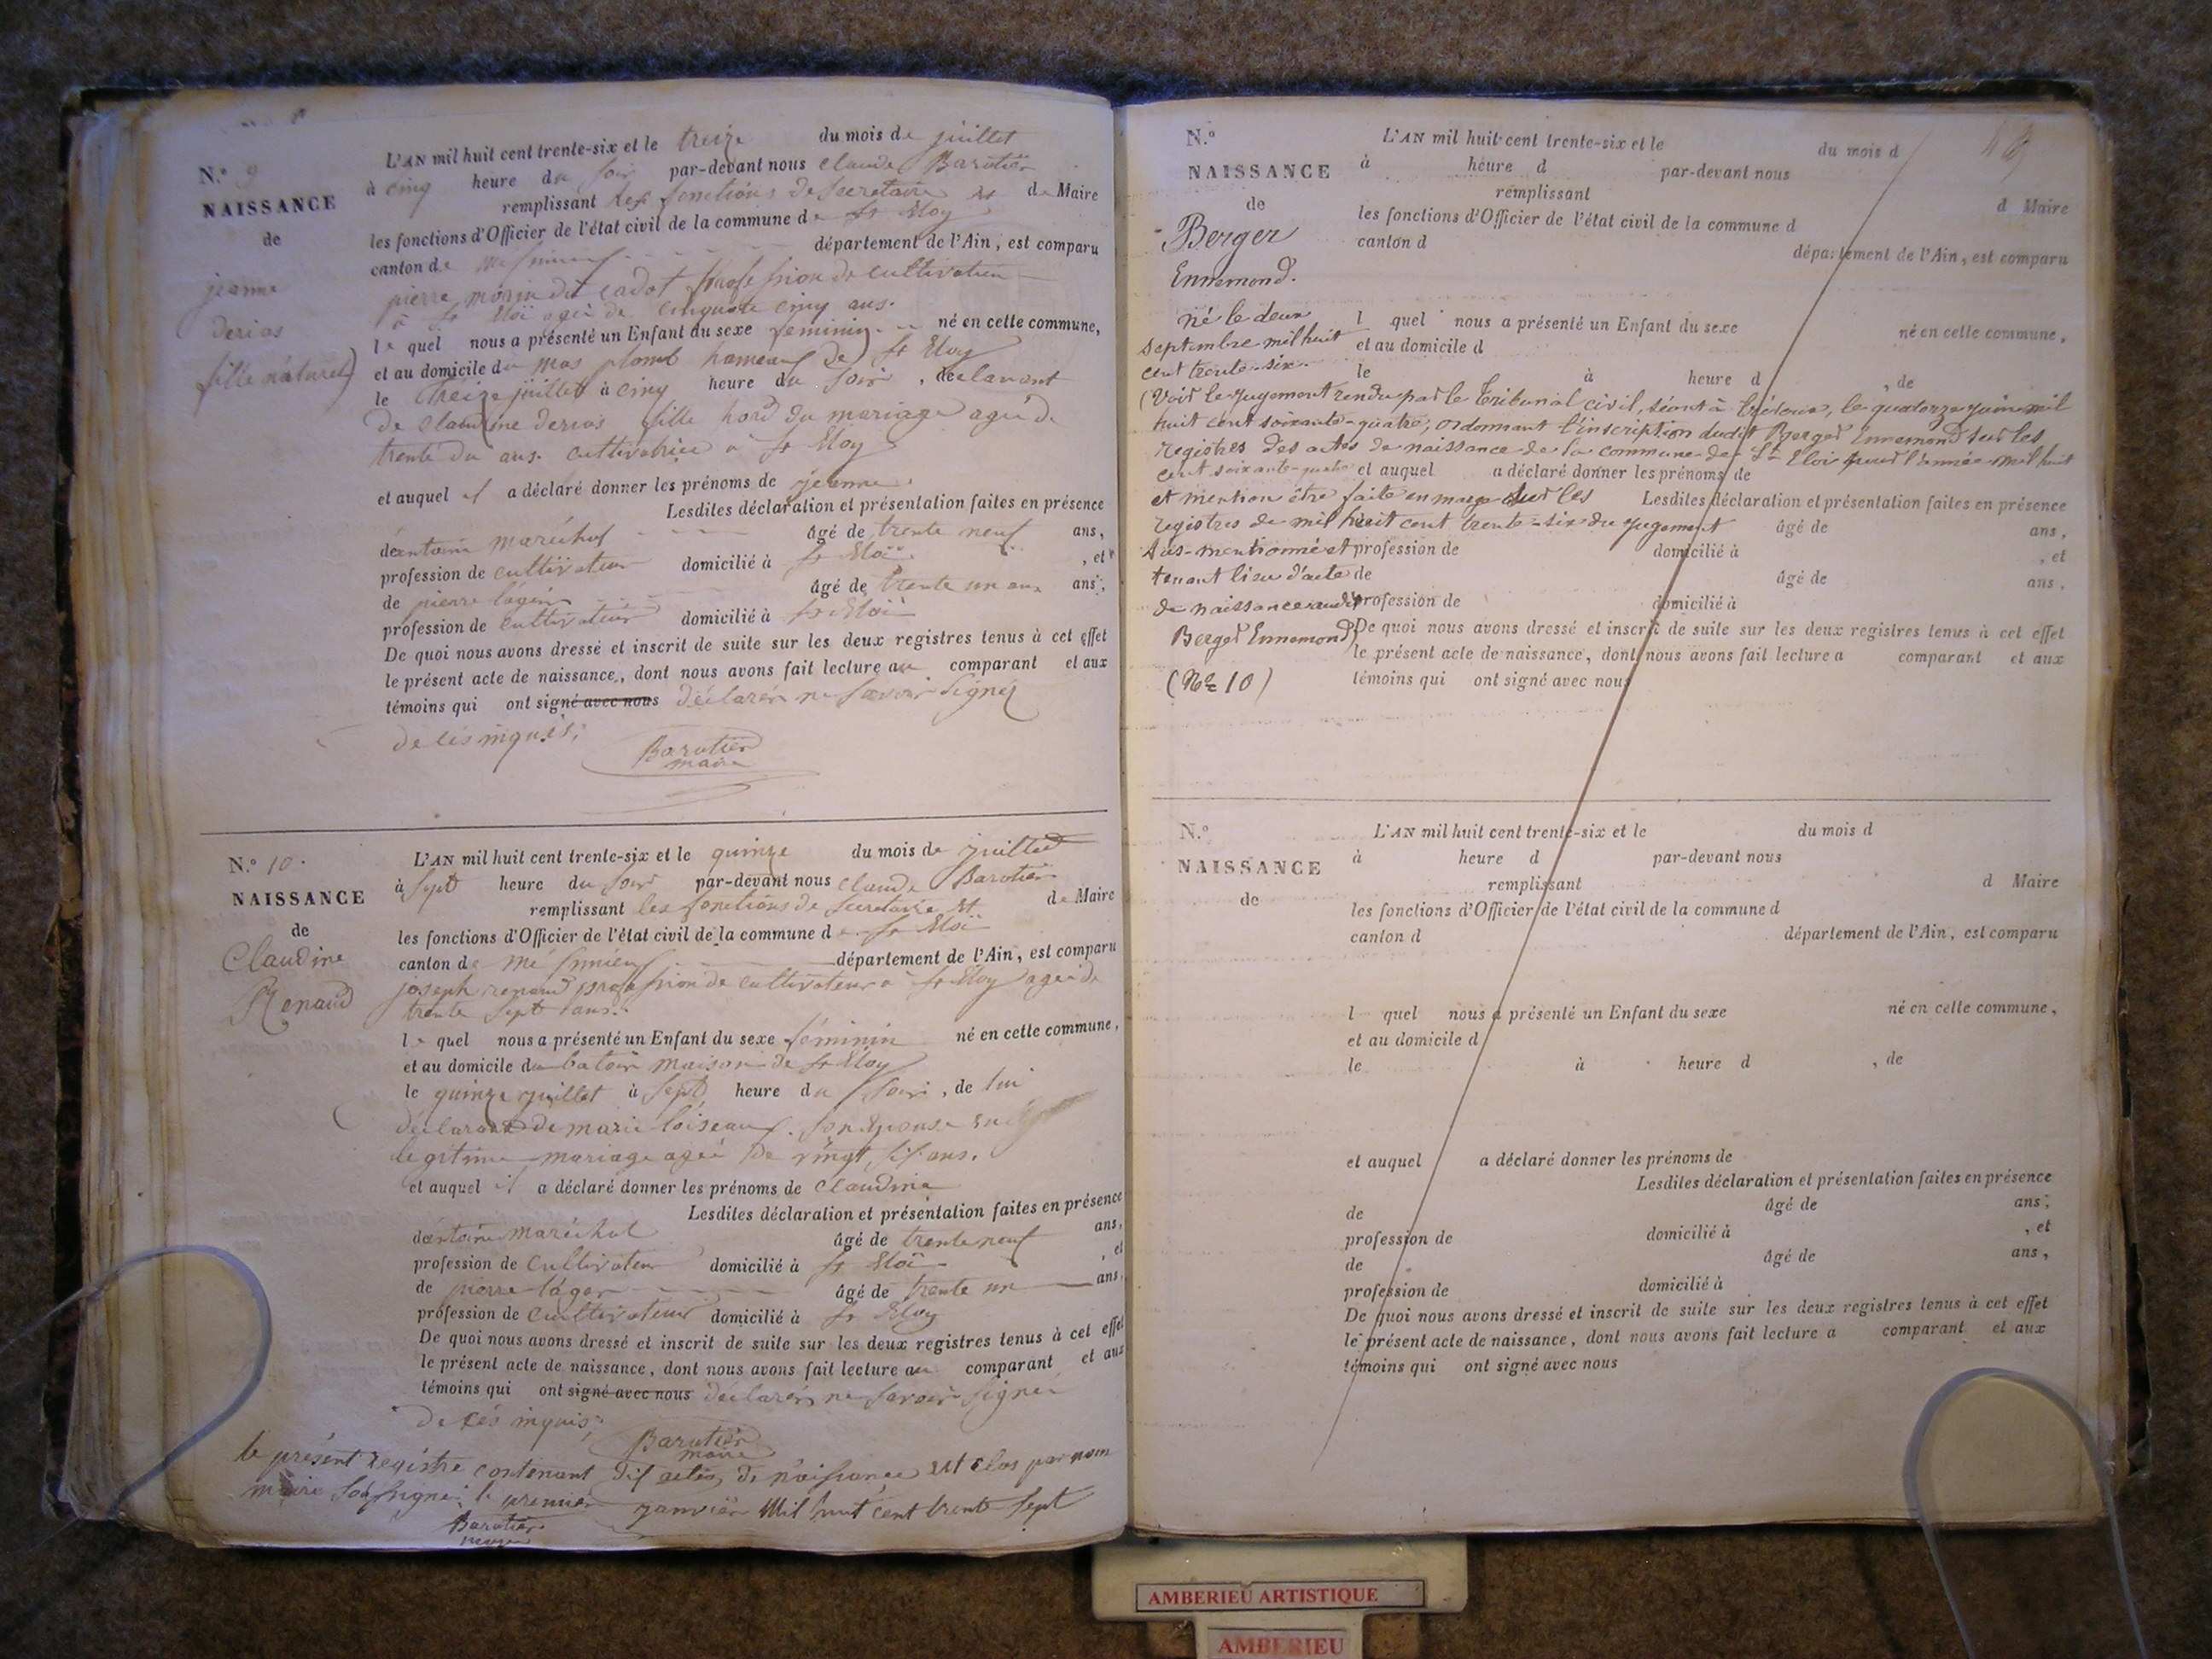 N.º 9
NAISSANCE
de
jeanne
derias
fille naturel
L'AN mil huit cent trente-six et le treize du mois de juillet
à cinq heure du soir par-devant nous Claude Barutier
remplissant les fonctions de secretaire et de Maire
les fonctions d'Officier de l'état civil de la commune de St Eloy
canton de département de l'Ain, est comparu
pierre morin dit cadot profession de cultivateur
à St Eloi agé de cinquante cinq ans.
le quel nous a présenté un Enfant du sexe feminin né en cette commune,
et au domicile du mas plomb hameau de St Eloy
le treize juillet à cinq heure du soir, declarant
de Claudine derias fille hors du mariage agée de
trente ans. cultivatrice à St Eloy
et auquel il a déclaré donner les prénoms de jeanne.
Lesdites déclaration et présentation faites en présence
dantoine maréchal âgé de trente neuf ans,
profession de cultivateur domicilié à St Eloi, et
de pierre lager âgé de trente un ans,
profession de cultivateur domicilié à St Eloi
De quoi nous avons dressé et inscrit de suite sur les deux registres tenus à cet effet
le présent acte de naissance, dont nous avons fait lecture au comparant et aux
témoins qui ont signé avec nous déclarér ne savoir signér
de cés inquis;
Barutier
maire
N.º 10.
NAISSANCE
de
Claudine
Renaud
L'AN mil huit cent trente-six et le quinze du mois de juillet
à sept heure du soir par-devant nous Claude Barutier
remplissant les fonctions de secretaire et de Maire
les fonctions d'Officier de l'état civil de la commune de St Eloi
canton de département de l'Ain, est comparu
joseph renaud profession de cultivateur à St Eloy agé de
trente sept ans.
le quel nous a présenté un Enfant du sexe féminin né en cette commune,
et au domicile du batoir maison de St Eloy
le quinze juillet à sept heure du soir, de lui
déclarant de marie loiseau. son epouse en
legitime mariage agée de vingt six ans.
et auquel il a déclaré donner les prénoms de Claudine
Lesdites déclaration et présentation faites en présence
dantoine maréchal âgé de trente neuf ans,
profession de cultivateur domicilié à St Eloi, et
de pierre lager âgé de trente un ans,
profession de cultivateur domicilié à St Eloy
De quoi nous avons dressé et inscrit de suite sur les deux registres tenus à cet effet
le présent acte de naissance, dont nous avons fait lecture au comparant et aux
témoins qui ont signé avec nous déclarér ne savoir signér
de cés inquis;
Barutier
maire
le présent registre contenant dix actes de naissance est clos par nous
maire soussigné le premier janvier mil huit cent trente sept
Barutier
maire
N.º
NAISSANCE
de
Berger
Ennemond.
né le deux
septembre mil huit
cent trente-six.
L'AN mil huit cent trente-six et le du mois d
à heure d par-devant nous
remplissant d Maire
les fonctions d'Officier de l'état civil de la commune d
canton d département de l'Ain, est comparu
l quel nous a présenté un Enfant du sexe né en cette commune,
et au domicile d
le à heure d , de
(Voir le jugement rendu par le Tribunal civil, séant à Trévoux, le quatorze juin mil
huit cent soixante-quatre, ordonnant l'inscription dudit Berger Ennemond sur les
registres des actes de naissance de la commune de St Eloi pour l'année mil huit
cent soixante-quatre
et auquel a déclaré donner les prénoms de
et mention être faite en marge sur les
Lesdites déclaration et présentation faites en présence
registres de mil huit cent trente-six du jugement
âgé de ans,
sus-mentionné et
profession de domicilié à , et
tenant lieu d'acte
de âgé de ans,
de naissance audit
profession de domicilié à
Berger Ennemond)
De quoi nous avons dressé et inscrit de suite sur les deux registres tenus à cet effet
le présent acte de naissance, dont nous avons fait lecture a comparant et aux
(No 10)
témoins qui ont signé avec nous
N.º
NAISSANCE
de
L'AN mil huit cent trente-six et le du mois d
à heure d par-devant nous
remplissant d Maire
les fonctions d'Officier de l'état civil de la commune d
canton d département de l'Ain, est comparu
l quel nous a présenté un Enfant du sexe né en cette commune,
et au domicile d
le à heure d , de
et auquel a déclaré donner les prénoms de
Lesdites déclaration et présentation faites en présence
de âgé de ans,
profession de domicilié à , et
de âgé de ans,
profession de domicilié à
De quoi nous avons dressé et inscrit de suite sur les deux registres tenus à cet effet
le présent acte de naissance, dont nous avons fait lecture a comparant et aux
témoins qui ont signé avec nous
AMBERIEU ARTISTIQUE
AMBERIEU